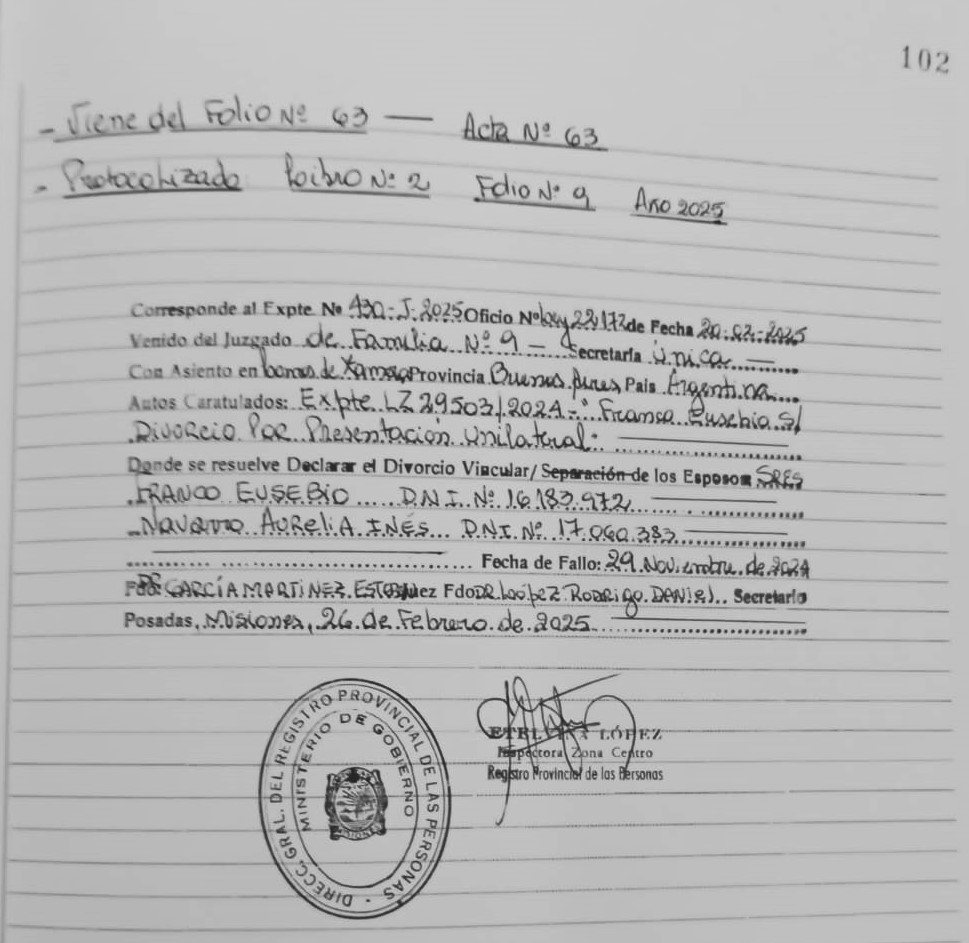 102
- Viene del Folio Nº 63 — Acta Nº 63
- Protocolizado Libro Nº 2 Folio Nº 9 Año 2025
Corresponde al Expte Nº 430-J-2025 Oficio Nº Ley 22.172 de Fecha 20-02-2025
Venido del Juzgado de Familia Nº 9 - Secretaría Única
Con Asiento en Lomas de Zamora Provincia Buenos Aires, País Argentina
Autos Caratulados: Expte LZ 29503/2024 - Franco Eusebio S/
Divorcio Por Presentación Unilateral
Donde se resuelve Declarar el Divorcio Vincular/ Separación de los Esposos SRES
FRANCO EUSEBIO D.N.I. Nº 16.183.972
Navarro AURELIA INÉS D.N.I. Nº 17.060.383
Fecha de Fallo: 29 Noviembre de 2024
Fdo: GARCÍA MARTINEZ Juez Fdo DR López Rodrigo DANIEL Secretario
Posadas, Misiones, 26 de Febrero de 2025
LÓPEZ
Inspectora Zona Centro
Registro Provincial de las Personas
DIRECC. GRAL. DEL REGISTRO PROVINCIAL DE LAS PERSONAS
MINISTERIO DE GOBIERNO